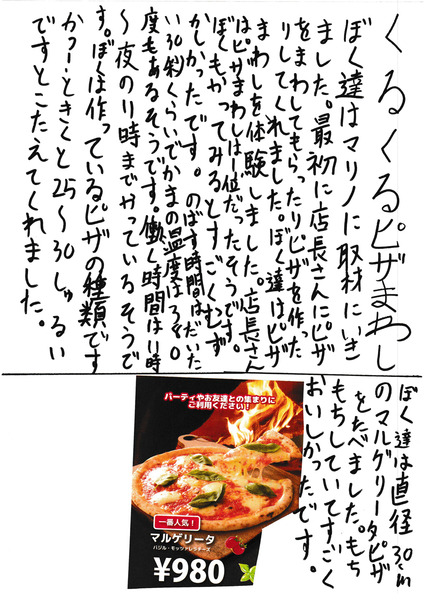 くるくるピザまわし
ぼく達はマリノに取材にいき
ました。最初に店長さんにピザ
をまわしてもらったりピザを作った
りしてくれました。ぼく達はピザ
まわしを体験しました。店長さん
はピザまわしは1位だったそうです。
ぼくもやってみるとすごくむず
かしかったです。のばす時間はだいた
い30秒くらいでかまの温度は380
度もあるそうです。働く時間は11時
〜夜の11時までやっているそうで
す。ぼくは作っているピザの種類です
かつーときくと25〜30しゅるい
ですとこたえてくれました。
ぼく達は直径30cm
のマルゲリータピザ
をたべました。もち
もちしていてすごく
おいしかったです。
パーティやお友達との集まりに
ご利用ください！
一番人気！
マルゲリータ
バジル・モッツァレラチーズ
¥980